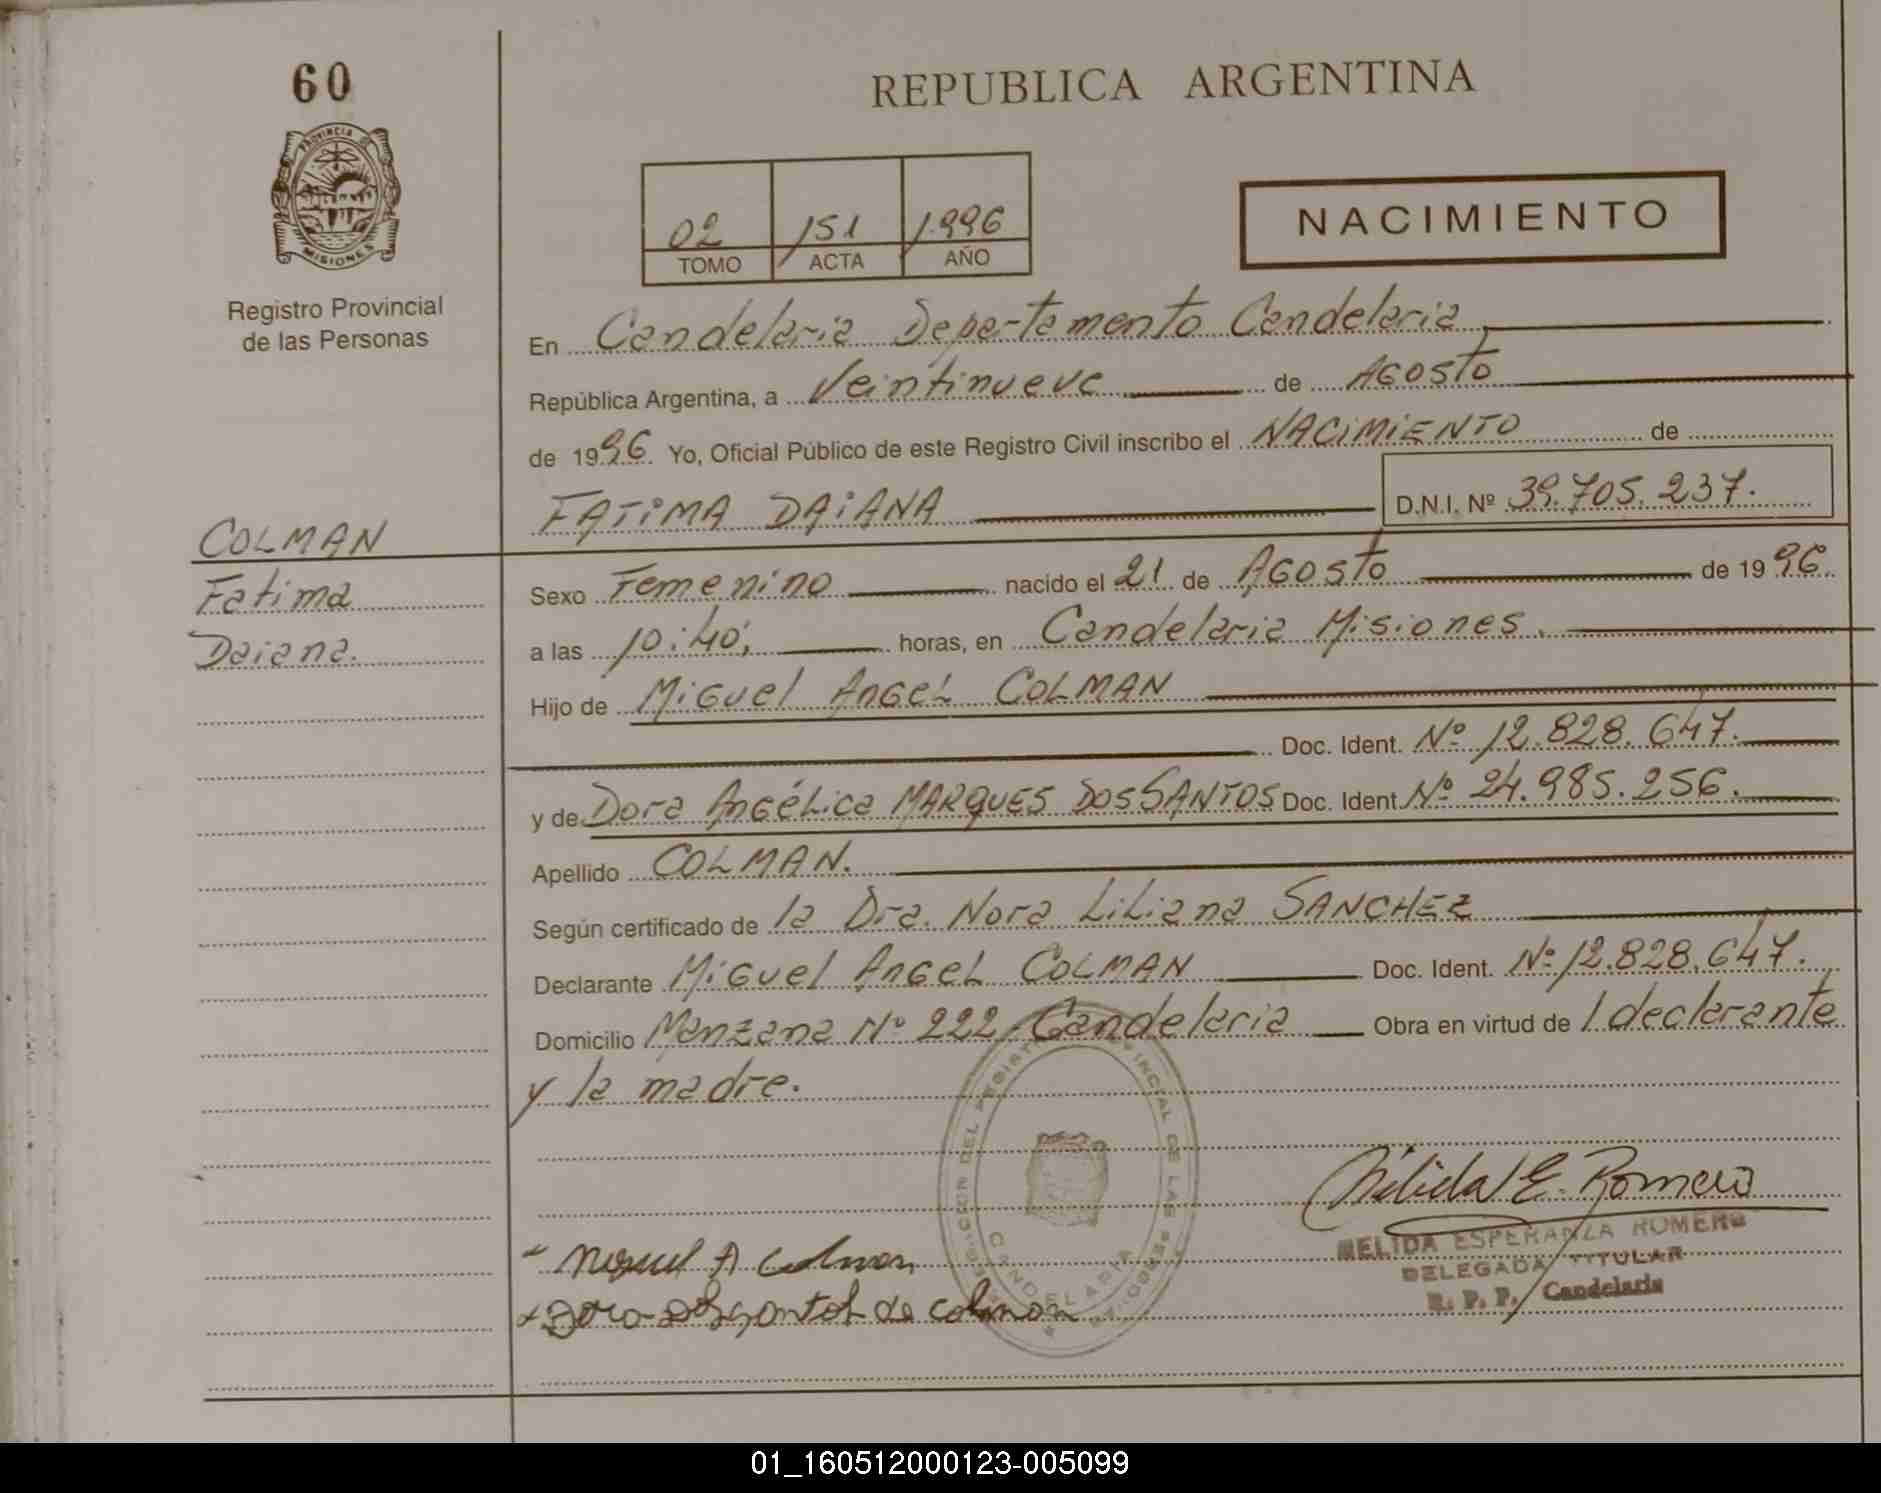 60
REPUBLICA ARGENTINA
PROVINCIA DE
MISIONES
Registro Provincial
de las Personas
02 151 1.996
TOMO ACTA AÑO
NACIMIENTO
En Candelaria Departamento Candelaria
República Argentina, a Veintinueve de AGOSTO
de 1996. Yo, Oficial Público de este Registro Civil inscribo el NACIMIENTO de
FATIMA DAIANA D.N.I. Nº 39.705.237.
COLMAN
Fatima
Daiana.
Sexo Femenino nacido el 21 de AGOSTO de 1996.
a las 10:40, horas, en Candelaria Misiones.
Hijo de Miguel Angel COLMAN
Doc. Ident. Nº 12.828.647.
y de Dora Angélica MARQUES DOS SANTOS Doc. Ident. Nº 24.985.256.
Apellido COLMAN.
Según certificado de la Dra. Nora Liliana SANCHEZ
Declarante Miguel Angel COLMAN Doc. Ident. Nº 12.828.647.
Domicilio Manzana Nº 222 Candelaria Obra en virtud de l declarante
y la madre.
CANDELARIA
Nélida E. Romero
NELIDA ESPERANZA ROMERO
DELEGADA TITULAR
R. P. P. Candelaria
Miguel A Colman
Dora de Colman
01_160512000123-005099